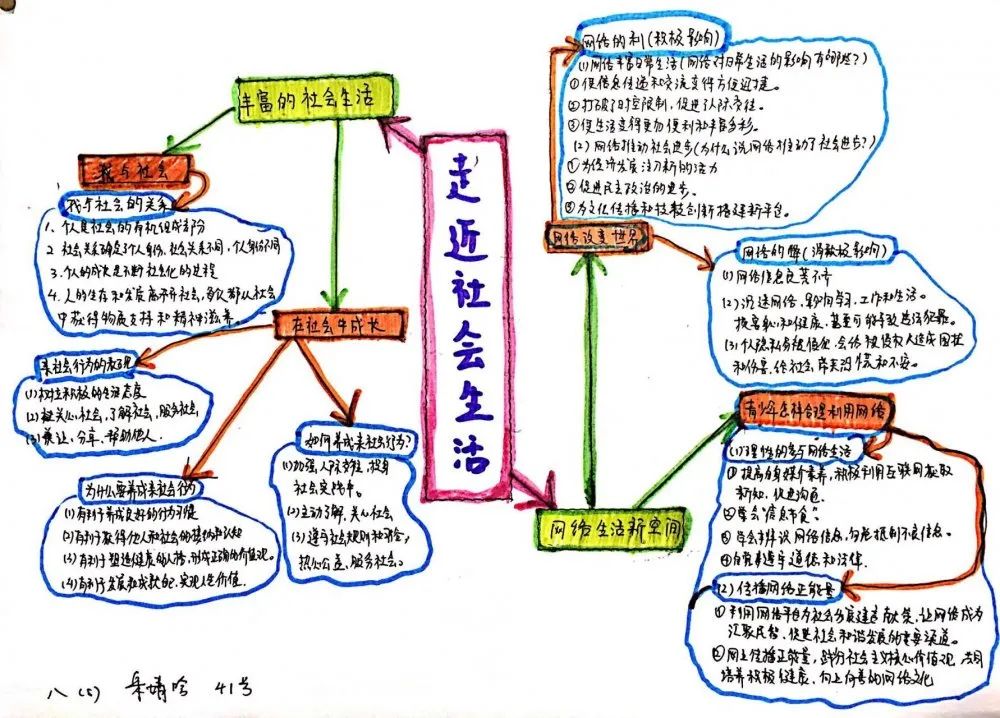 走近社会生活
丰富的社会生活
我与社会
我与社会的关系
1、个人是社会的有机组成部分
2 社会关系确定了个人身份。社会关系不同,个人身份不同
3.个人的成长是不断社会化的过程
4.人的生存和发展离不开社会,每个人都从社会
中获得物质支持和精神滋养
在社会中成长
亲社会行为的表现
(1)树立积极的生活态度
(2)被关心社会,了解社会,服务社会,
(3)谦让、分享、帮助他人.
为什么要养成亲社会行为
(1)有利于养成良好的行为习惯
(2)有利于获得他人和社会的接纳和认知
(3)有利于塑造健康的人格,形成正确的价值观。
(4)有利于发展和成就自己,实现人生价值.
如何养成亲社会行为?
(1)加强人际交往,投身
社会实践中。
(2)主动了解,关心社会,
(3)遵守社会规则和习俗,
热心公益,服务社会。
网络生活新空间
网络改变世界
网络的利(积极影响)
(1)网络丰富日常生活(网络对日常生活的影响有哪些?)
①使信息传递和交流变得方便迅捷。
②打破了时空限制,促进人际交往。
③使生活变得更加便利和丰富多彩。
(2)网络推动社会进步(为什么说网络推动了社会进步?)
①为经济发展注入新的活力
②促进民主政治的进步。
③为文化传播和科技创新搭建新平台。
网络的弊(消极影响)
(1)网络信息良莠不齐
(2)沉迷网络,影响学习,工作和生活。
损害身心和健康,甚至可能导致违法犯罪。
(3)个人隐私易被侵犯,会给被侵权人造成困扰
和伤害,给社会带来恐慌和不安。
青少年怎样合理利用网络
(1)理性的参与网络生活
①提高自身媒介素养,积极利用互联网获取
新知、促进沟通
②学会“信息节食”
③学会辨识网络信息,自觉抵制不良信息。
④自觉遵守道德和法律.
(2)传播网络正能量
①利用网络平台为社会发展建言献策,让网络成为
汇聚民智、促进社会和谐发展的重要渠道。
②网上传播正能量,践行社会主义核心价值观,共同
培养积极健康、向上向善的网络文化
八(5) 41号